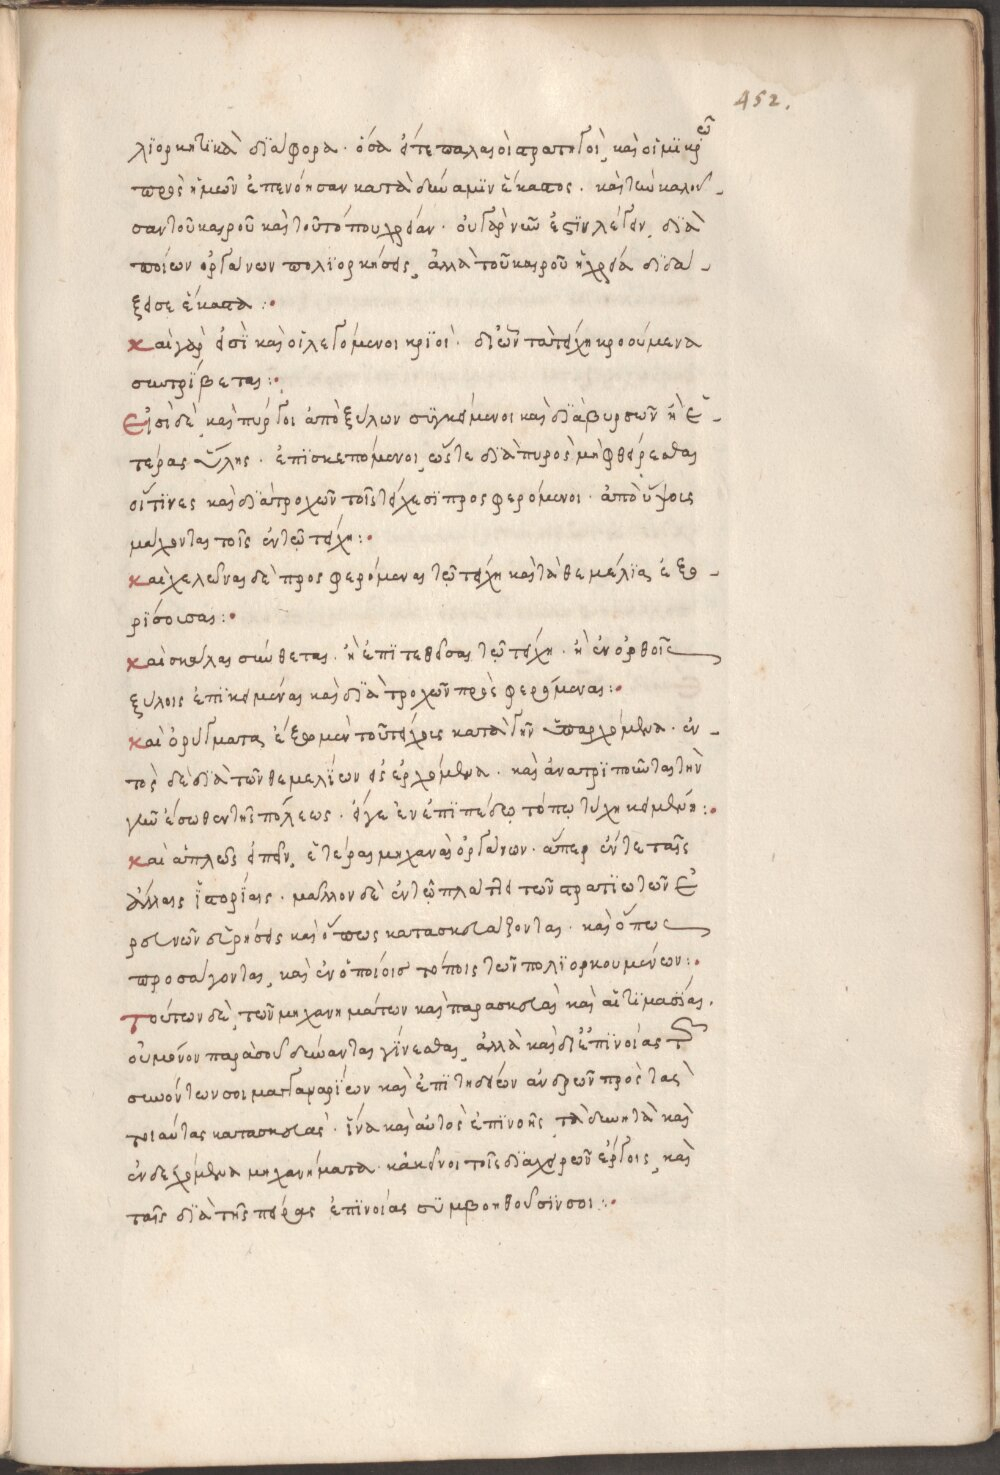 452.
λϊορκητϊκὰ διάφορα · ὅσα ὅτε πάλαι οἱ στρατηγοὶ, καὶ οἱ μϊκρῶ
πρὸς ἡμῶν ἐπενόησαν κατὰ δύναμϊν ἕκαστος · καὶ τὴν καλοῦ-
σαν τοῦ καιροῦ καὶ τοῦ τόπου χρείαν · οὐ γὰρ νῦν ἐστϊν λέγειν, διὰ
ποίων ὀργάνων πολϊορκήσεις, ἀλλὰ τοῦ καιροῦ ἡ χρεία διδά-
ξει σε ἕκαστα :·
καὶ γάρ εἰσϊ καὶ οἱ λεγόμενοι κρϊοὶ · δι ὧν τὰ τείχη κρουόμενα
συντρίβεται :·
Εἰσὶ δὲ, καὶ πύργοι ἀπὸ ξύλων συγκείμενοι καὶ διὰ βυρσῶν ἢ ἑ-
τέρας ὕλης · ἐπϊσκεπόμενοι, ὥστε διὰ πυρὸς μὴ φθείρεσθαι
οἵτινες καὶ διὰ τροχῶν τοῖς τείχεσϊ προσφερόμενοι · ἀπὸ ὕψους
μάχονται τοῖς ἐν τῷ τείχη :·
καὶ χελώνας δὲ προσφερόμενας τῷ τείχη καὶ τὰ θεμέλϊα, ἐξο-
ρϊσούσας :·
καὶ σκάλας συνθέτας · ἢ ἐπϊτεθείσας τῷ τείχη · ἢ ἐν ὀρθοῖς
ξύλοις ἐπϊκειμένας καὶ διὰ τροχῶν προσφερομένας :·
καὶ ὀρύγματα, ἔξω μὲν τοῦ τείχους κατὰ γῆν ὑπαρχόμενα · ἐν-
τὸς δὲ διὰ τῶν θεμελίων εἰσερχόμενα · καὶ ἀνατρϊποῦντα τὴν
γῆν ἔσωθεν τῆς πόλεως · εἴγε ἐν ἐπϊπέδῳ τόπῳ τύχη κειμένη :·
καὶ ἁπλῶς εἰπεῖν, ἑτέρας μηχανὰς ὀργάνων · ἅπερ ἔν τε ταῖς
ἄλλαις ἱστορίαις · μᾶλλον δὲ ἐν τῷ πλάτει τῶν στρατϊωτῶν ἐ
ρευνῶν εὑρήσεις καὶ ὅπως κατασκευάζονται · καὶ ὅπως
προσάγονται, καὶ ἐν ὁποίοις τόποις τῶν πολϊορκουμένων :·
Τούτων δὲ, τῶν μηχανημάτων καὶ παρασκευὰς καὶ αἱτϊμασϊας,
οὐ μόνον παρὰ σοῦ δύνανται γίνεσθαι, ἀλλὰ καὶ δι ἐπϊνοίας τῶν
συνόντων σοι μαγγαναρϊων καὶ ἐπϊτηδείων ἀνδρῶν πρὸς τὰς
τοιαύτας κατασκευὰς · ἵνα καὶ αὐτὸς ἐπινοῆς, τὰ δυνητὰ καὶ
ἐνδεχόμενα μηχανήματα · κἀκεῖνοι τοῖς διὰ χειρῶν ἔργοις, καὶ
ταῖς διὰ τῆς πείρας ἐπϊνοίας συμβοηθοῦσϊν σοι :·